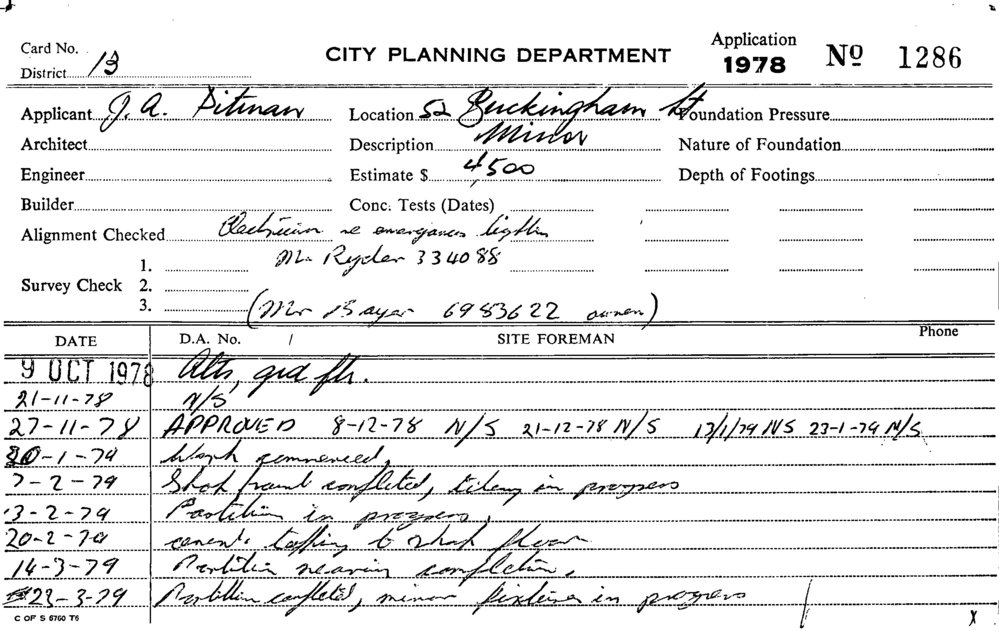 Card No.
CITY PLANNING DEPARTMENT
Application
1978
Nº 1286
District 13
Applicant J. A. Pitman Location 52 Buckingham St Foundation Pressure
Architect Description Minor Nature of Foundation
Engineer Estimate $ 4,500 Depth of Footings
Builder Conc. Tests (Dates)
Alignment Checked Electrician re emergency lighting
1. Mr Ryder 334088
Survey Check 2.
3. (Mr Bayar 6983622 owner)
DATE D.A. No. / SITE FOREMAN Phone
9 OCT 1978 Alts, grd flr.
21-11-78 N/S
27-11-78 APPROVED 8-12-78 N/S 21-12-78 N/S 13/1/79 N/S 23-1-79 N/S
30-1-79 Work commenced,
7-2-79 Shop front completed, tiling in progress
13-2-79 Partition in progress,
20-2-79 cement topping to shop floor
14-3-79 Partition nearing completion,
23-3-79 Partition completed, minor fixtures in progress
C OF S 6760 T6 X